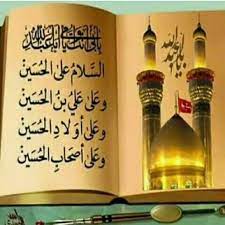 بأبي أنت وأمي يا أبا عبد الله
السلام على الحسين
وعلى علي بن الحسين
وعلى أولاد الحسين
وعلى أصحاب الحسين